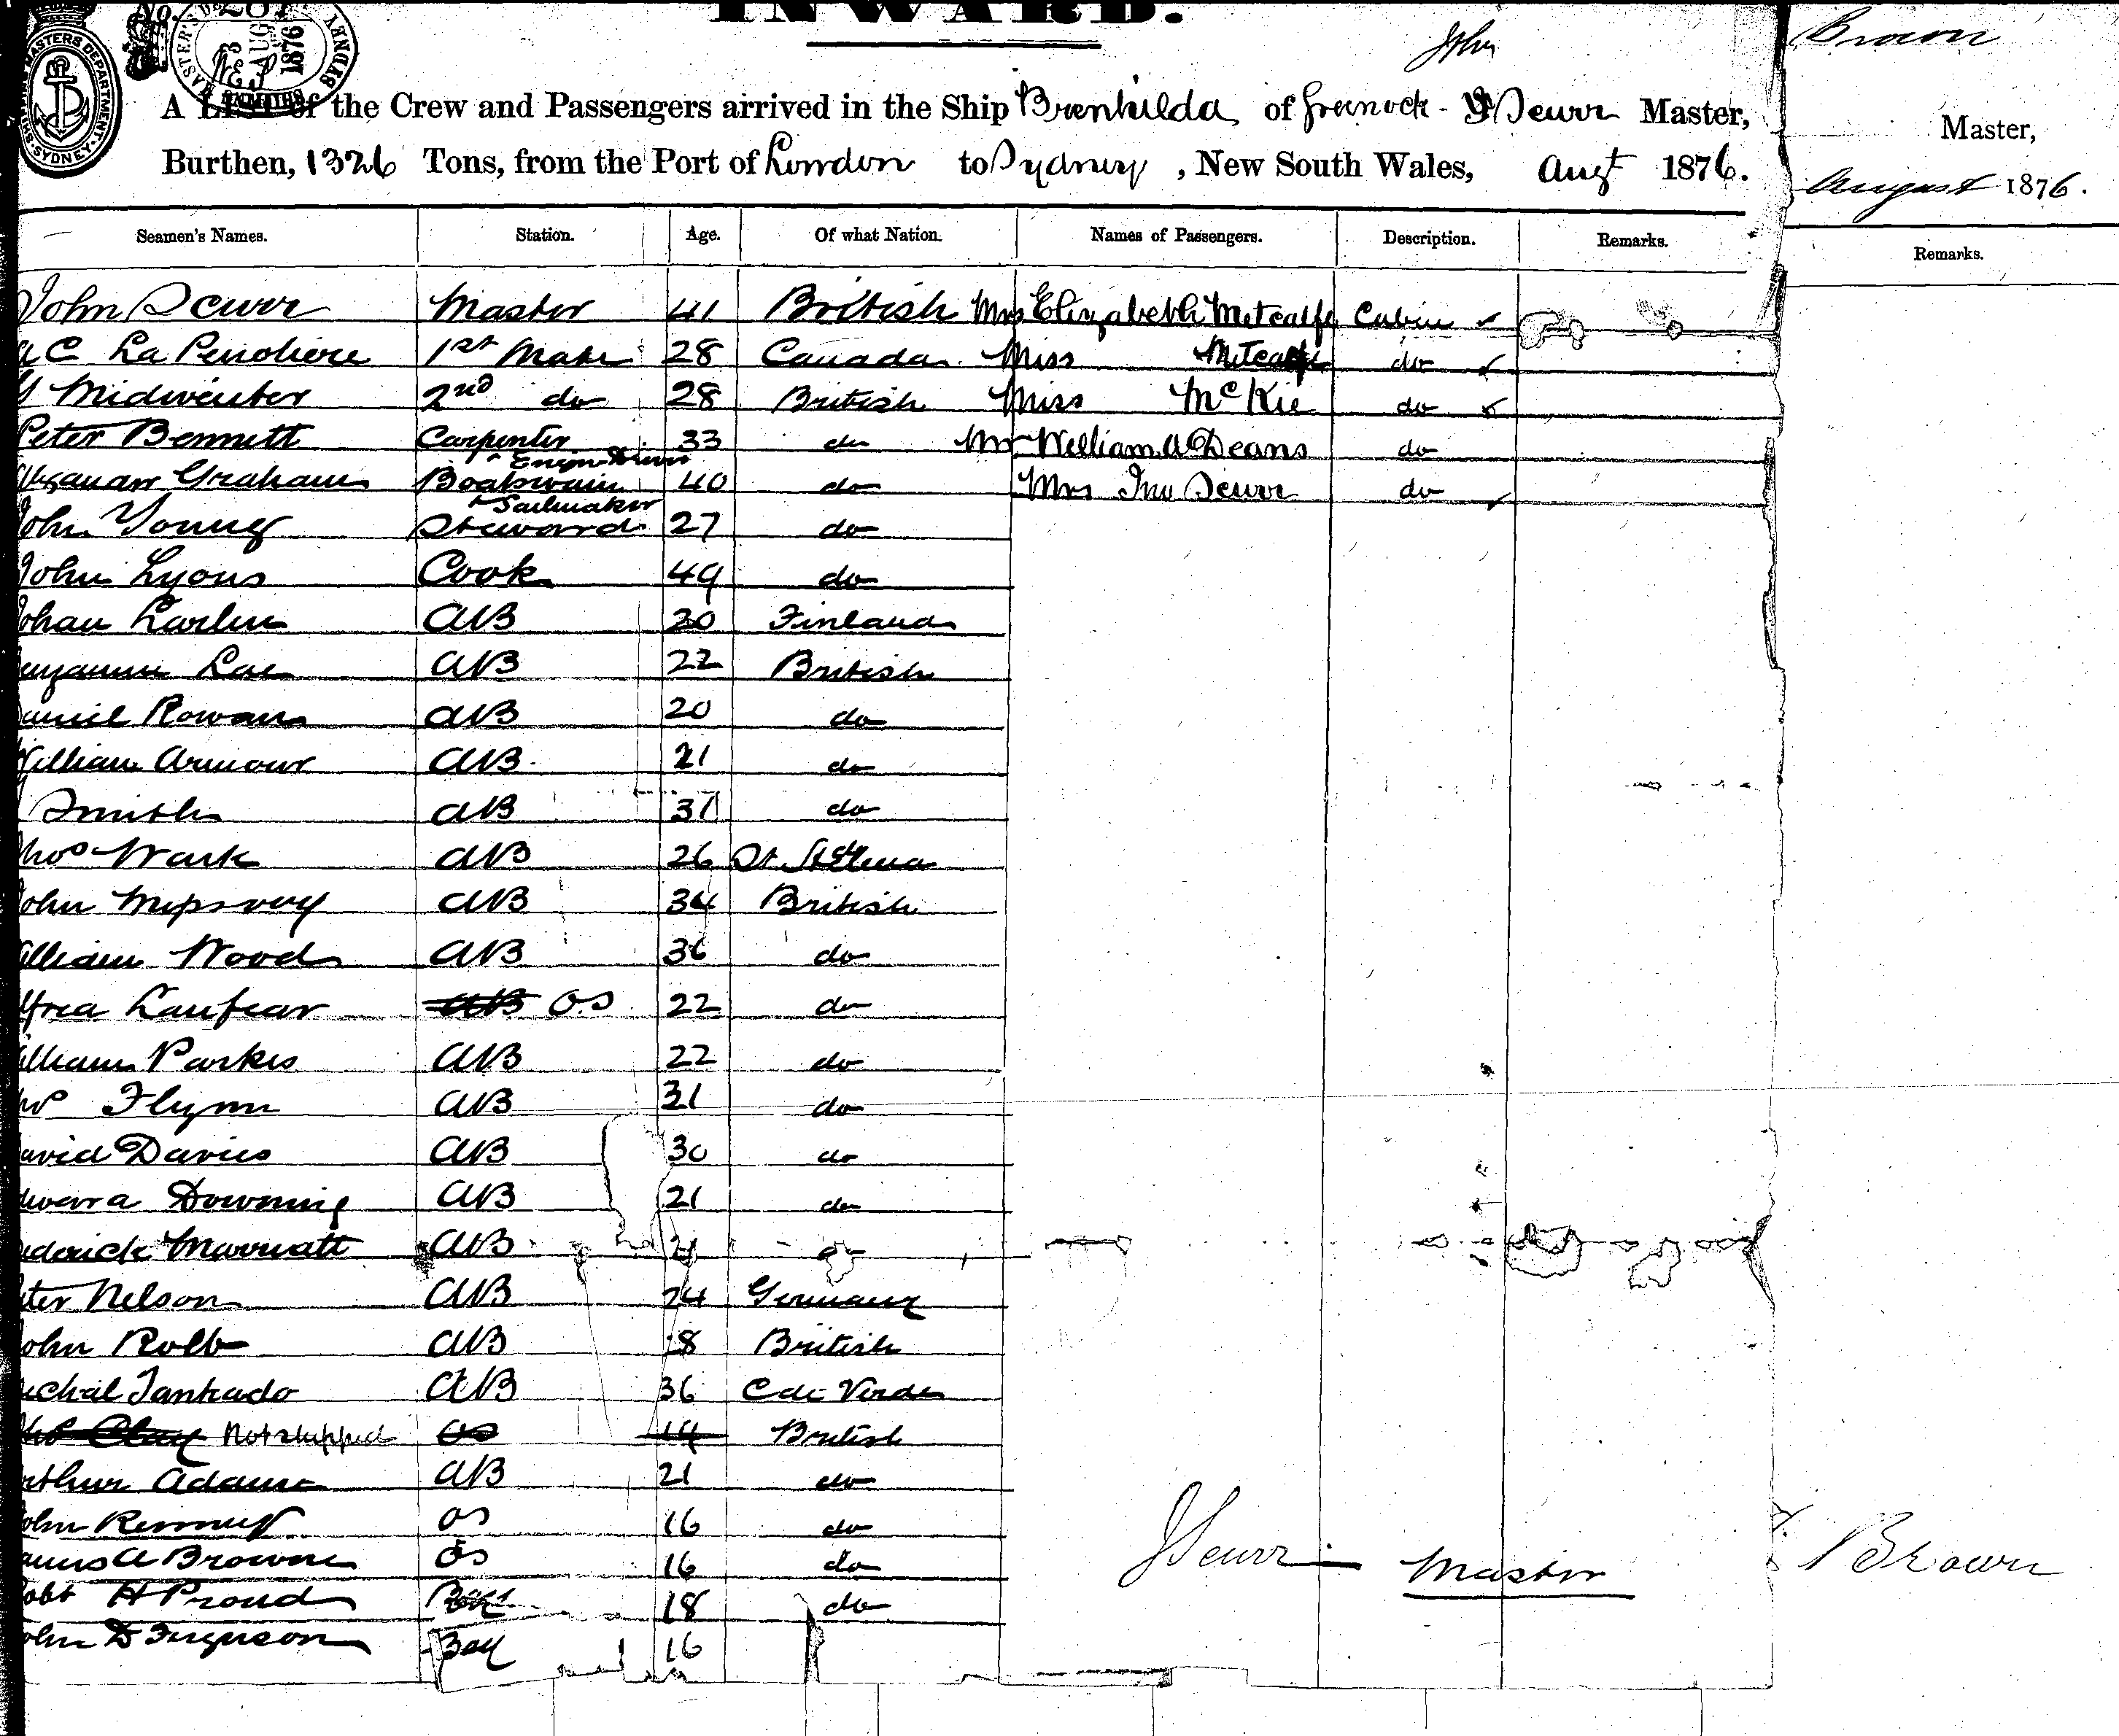 INWARD.
John
Brown
A List of the Crew and Passengers arrived in the Ship Brenhilda of Greenock - J Scurr Master,
Master,
Burthen, 1326 Tons, from the Port of London to Sydney, New South Wales, Augt 1876.
August 1876.
Seamen's Names. Station. Age. Of what Nation. Names of Passengers. Description. Remarks.
Remarks.
John Scurr Master 41 British Mrs Elizabeth Metcalfe Cabin
A C La Penotiere 1st Mate 28 Canada Miss Metcalfe do
Midwinter 2nd do 28 British Miss McKie do
Peter Bennett Carpenter 33 do Mr William A Deans do
+ Engin Driver
Graham Boatswain 40 do Mrs Jno Scurr do
+ Sailmaker
John Young Steward 27 do
John Lyons Cook 49 do
Johan AB 20 Finland
AB 22 British
Daniel Rowan AB 20 do
William Armour AB 21 do
Smith AB 31 do
Thos Wark AB 26 St Helena
John AB 34 British
William Wood AB 36 do
Lanfear AB OS 22 do
William Parkes AB 22 do
Flynn AB 31 do
David Davies AB 30 do
Edward Downing AB 21 do
Frederick Marryatt AB 21 do
Peter Nelson AB 24 Germany
John AB 18 British
Michal AB 36 C de Verde
Thos Clay Not shipped OS 14 British
Arthur Adams AB 21 do
John OS 16 do
James A Browne OS 16 do
Robt H Proud Boy 18 do
John D Ferguson Boy 16
J Scurr - Master
Brown